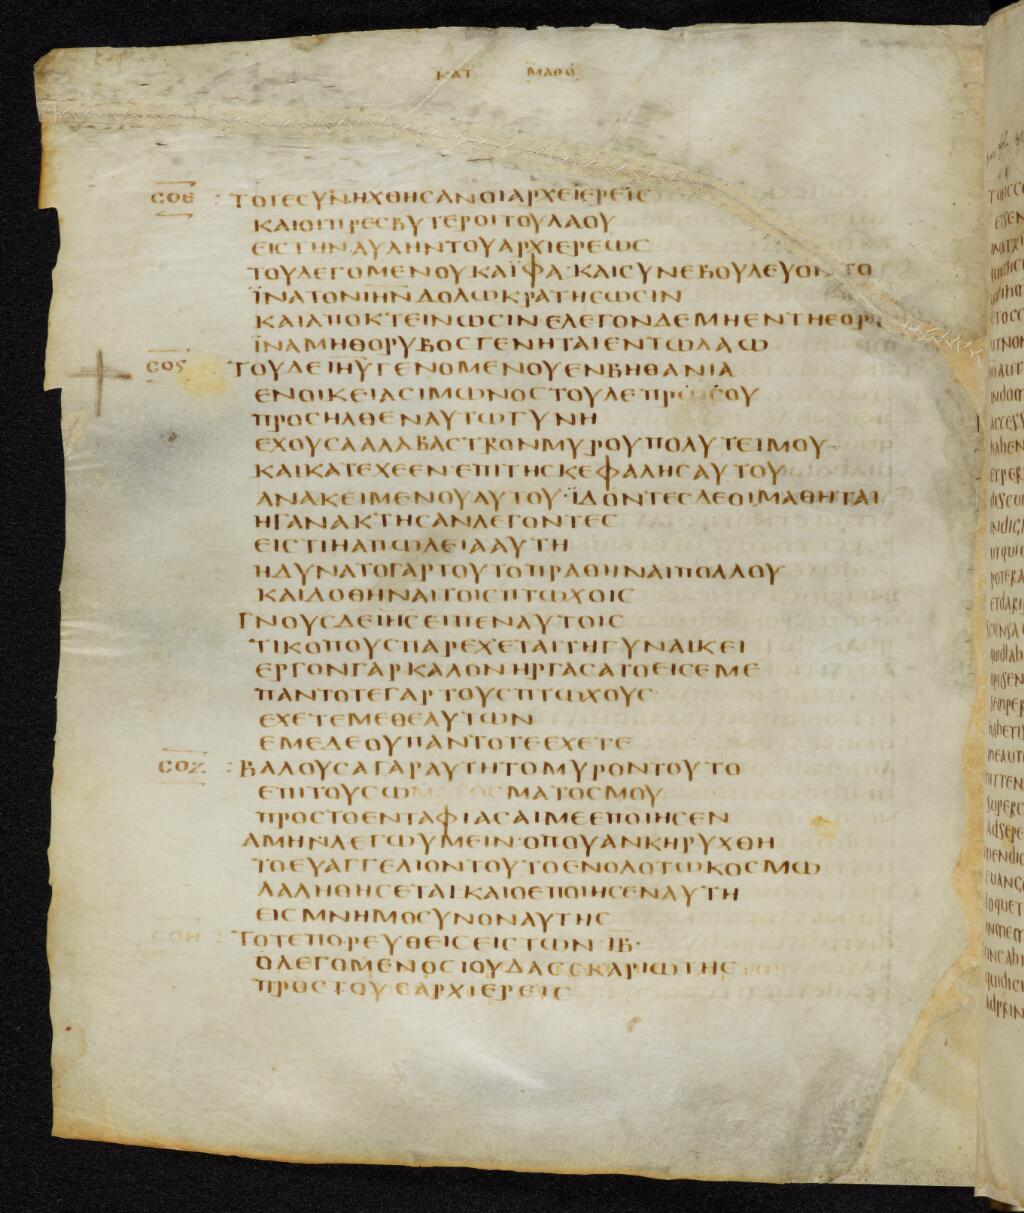 ΚΑΤ ΜΑΘΘ
ϹΟΕ ΤΟΤΕϹΥΝΗΧΘΗϹΑΝΟΙΑΡΧΕΙΕΡΕΙϹ
ΚΑΙΟΙΠΡΕϹΒΥΤΕΡΟΙΤΟΥΛΑΟΥ
ΕΙϹΤΗΝΑΥΛΗΝΤΟΥΑΡΧΙΕΡΕΩϹ
ΤΟΥΛΕΓΟΜΕΝΟΥΚΑΪΦΑ·ΚΑΙϹΥΝΕΒΟΥΛΕΥΟΝΤΟ
ΪΝΑΤΟΝΙΗΝΔΟΛΩΚΡΑΤΗϹΩϹΙΝ
ΚΑΙΑΠΟΚΤΕΙΝΩϹΙΝΕΛΕΓΟΝΔΕΜΗΕΝΤΗΕΟΡΤ
ΪΝΑΜΗΘΟΡΥΒΟϹΓΕΝΗΤΑΙΕΝΤΩΛΑΩ
ϹΟϚ ΤΟΥΔΕΙΗΥΓΕΝΟΜΕΝΟΥΕΝΒΗΘΑΝΙΑ
ΕΝΟΙΚΕΙΑϹΙΜΩΝΟϹΤΟΥΛΕΠΡΩϹΟΥ
ΠΡΟϹΗΛΘΕΝΑΥΤΩΓΥΝΗ
ΕΧΟΥϹΑΑΛΑΒΑϹΤΡΟΝΜΥΡΟΥΠΟΛΥΤΕΙΜΟΥ
ΚΑΙΚΑΤΕΧΕΕΝΕΠΙΤΗϹΚΕΦΑΛΗϹΑΥΤΟΥ
ΑΝΑΚΕΙΜΕΝΟΥΑΥΤΟΥ·ΪΔΟΝΤΕϹΔΕΟΙΜΑΘΗΤΑΙ
ΗΓΑΝΑΚΤΗϹΑΝΛΕΓΟΝΤΕϹ
ΕΙϹΤΙΗΑΠΩΛΕΙΑΑΥΤΗ
ΗΔΥΝΑΤΟΓΑΡΤΟΥΤΟΠΡΑΘΗΝΑΙΠΟΛΛΟΥ
ΚΑΙΔΟΘΗΝΑΙΤΟΙϹΠΤΩΧΟΙϹ
ΓΝΟΥϹΔΕΙΗϹΕΙΠΕΝΑΥΤΟΙϹ
ΤΙΚΟΠΟΥϹΠΑΡΕΧΕΤΑΙΤΗΓΥΝΑΙΚΕΙ
ΕΡΓΟΝΓΑΡΚΑΛΟΝΗΡΓΑϹΑΤΟΕΙϹΕΜΕ
ΠΑΝΤΟΤΕΓΑΡΤΟΥϹΠΤΩΧΟΥϹ
ΕΧΕΤΕΜΕΘΕΑΥΤΩΝ
ΕΜΕΔΕΟΥΠΑΝΤΟΤΕΕΧΕΤΕ
ϹΟΖ ΒΑΛΟΥϹΑΓΑΡΑΥΤΗΤΟΜΥΡΟΝΤΟΥΤΟ
ΕΠΙΤΟΥϹΩΜΑΤΟϹΜΟΥ
ΠΡΟϹΤΟΕΝΤΑΦΙΑϹΑΙΜΕΕΠΟΙΗϹΕΝ
ΑΜΗΝΛΕΓΩΥΜΕΙΝ·ΟΠΟΥΑΝΚΗΡΥΧΘΗ
ΤΟΕΥΑΓΓΕΛΙΟΝΤΟΥΤΟΕΝΟΛΟΤΩΚΟϹΜΩ
ΛΑΛΗΘΗϹΕΤΑΙ·ΚΑΙΟΕΠΟΙΗϹΕΝΑΥΤΗ
ΕΙϹΜΝΗΜΟϹΥΝΟΝΑΥΤΗϹ
ϹΟΗ ΤΟΤΕΠΟΡΕΥΘΕΙϹΕΙϹΤΩΝ·ΙΒ·
ΟΛΕΓΟΜΕΝΟϹΙΟΥΔΑϹϹΚΑΡΙΩΤΗϹ
ΠΡΟϹΤΟΥϹΑΡΧΙΕΡΕΙϹ